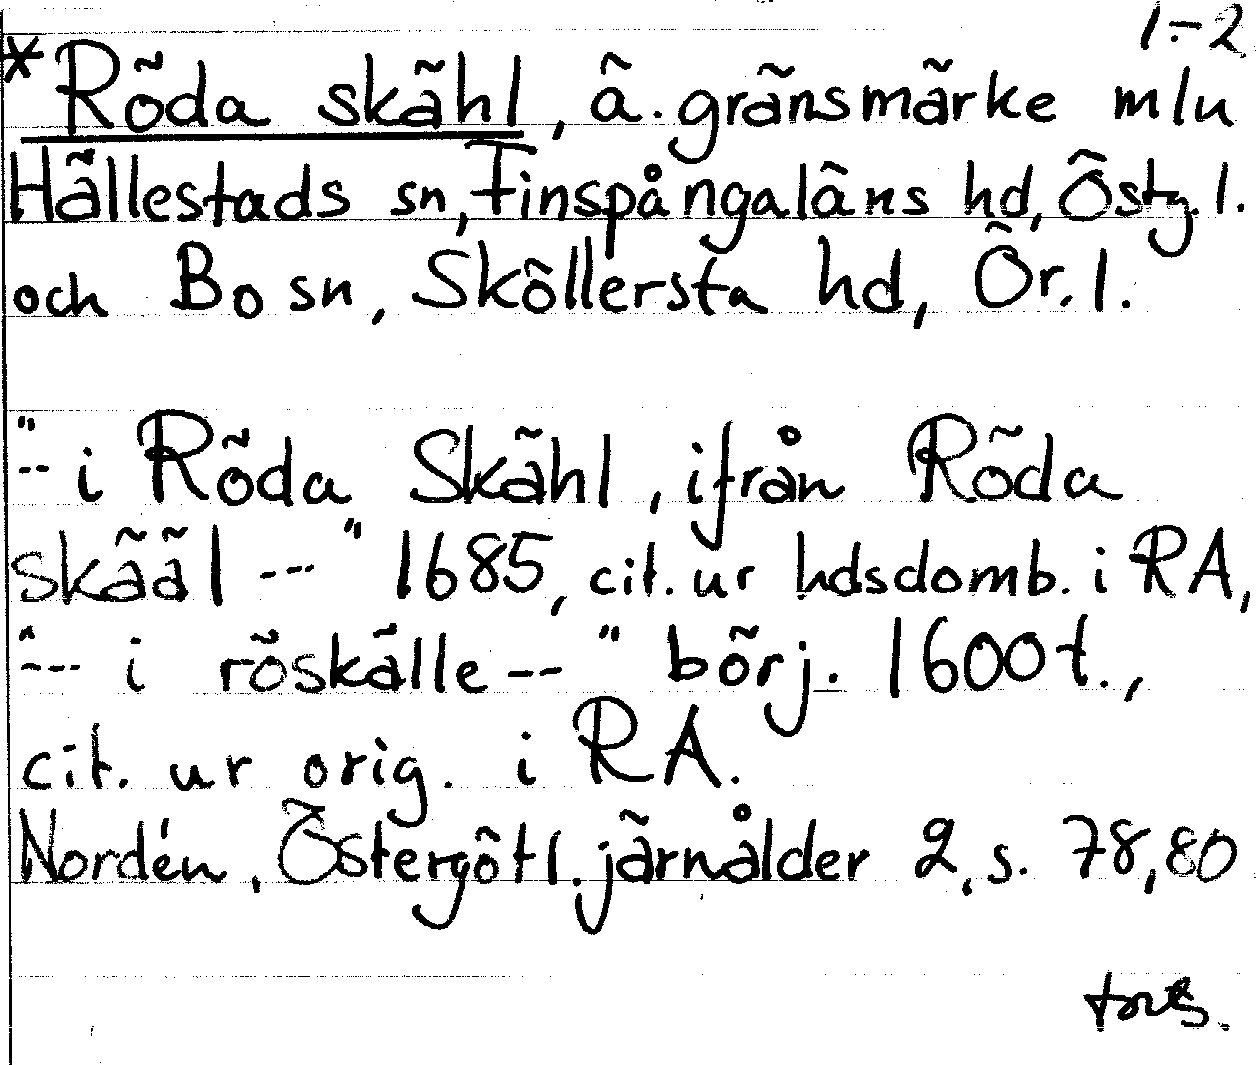 1.-2
*Röda skähl, ä. gränsmärke mlu
Hällestads sn, Finspångaläns hd, Östg. l.
och Bo sn, Sköllersta hd, Ör. l.
"-- i Röda Skähl, ifrån Röda
skääl ---" 1685, cit. ur hdsdomb. i RA,
"--- i röskälle ---" börj. 1600t.,
cit. ur orig. i RA.
Nordén, Östergötl. järnålder 2, s. 78, 80